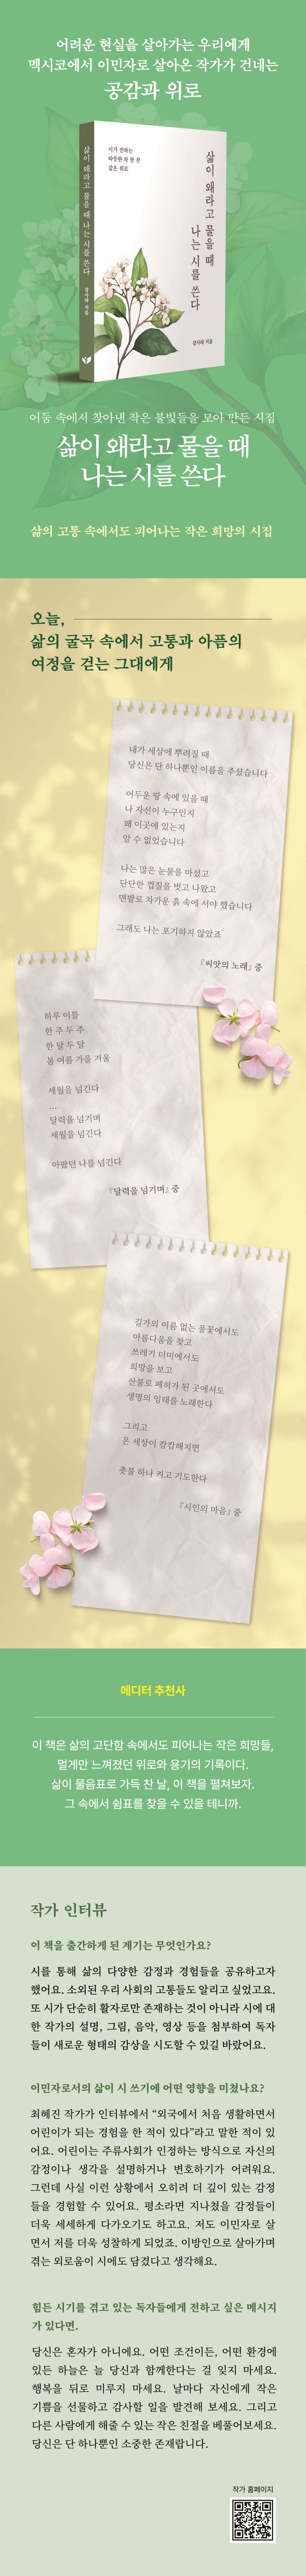 어려운 현실을 살아가는 우리에게
멕시코에서 이민자로 살아온 작가가 건네는
공감과 위로
삶이 왜라고 물을 때 나는 시를 쓴다
시가 전하는
따뜻한 차 한 잔
같은 위로
삶이 왜라고 물을 때
나는 시를 쓴다
어둠 속에서 찾아낸 작은 불빛들을 모아 만든 시집
삶이 왜라고 물을 때
나는 시를 쓴다
삶의 고통 속에서도 피어나는 작은 희망의 시집
오늘,
삶의 굴곡 속에서 고통과 아픔의
여정을 걷는 그대에게
내가 세상에 뿌려질 때
당신은 단 하나뿐인 이름을 주셨습니다
어두운 땅 속에 있을 때
나 자신이 누구인지
왜 이곳에 있는지
알 수 없었습니다
나는 많은 눈물을 마셨고
단단한 껍질을 벗고 나왔고
맨발로 차가운 흙 속에 서야 했습니다
그래도 나는 포기하지 않았죠
『씨앗의 노래』 중
하루 이틀
한 주 두 주
한 달 두 달
봄 여름 가을 겨울
세월을 넘긴다
...
달력을 넘기며
세월을 넘긴다
아팠던 나를 넘긴다
『달력을 넘기며』 중
길가의 이름 없는 풀꽃에서도
아름다움을 찾고
쓰레기 더미에서도
희망을 보고
산불로 폐허가 된 곳에서도
생명의 잉태를 노래한다
그리고
온 세상이 캄캄해지면
촛불 하나 켜고 기도한다
『시인의 마음』 중
에디터 추천사
이 책은 삶의 고단함 속에서도 피어나는 작은 희망들,
멀게만 느껴졌던 위로와 용기의 기록이다.
삶이 물음표로 가득 찬 날, 이 책을 펼쳐보자.
그 속에서 쉼표를 찾을 수 있을 테니까.
작가 인터뷰
이 책을 출간하게 된 계기는 무엇인가요?
시를 통해 삶의 다양한 감정과 경험들을 공유하고자
했어요. 소외된 우리 사회의 고통들도 알리고 싶었고요.
또 시가 단순히 활자로만 존재하는 것이 아니라 시에 대
한 작가의 설명, 그림, 음악, 영상 등을 첨부하여 독자
들이 새로운 형태의 감상을 시도할 수 있길 바랐어요.
이민자로서의 삶이 시 쓰기에 어떤 영향을 미쳤나요?
최혜진 작가가 인터뷰에서 “외국에서 처음 생활하면서
어린이가 되는 경험을 한 적이 있다”라고 말한 적이 있
어요. 어린이는 주류사회가 인정하는 방식으로 자신의
감정이나 생각을 설명하거나 변호하기가 어려워요.
그런데 사실 이런 상황에서 오히려 더 깊이 있는 감정
들을 경험할 수 있어요. 평소라면 지나쳤을 감정들이
더욱 세세하게 다가오기도 하고요. 저도 이민자로 살
면서 저를 더욱 성찰하게 되었죠. 이방인으로 살아가며
겪는 외로움이 시에도 담겼다고 생각해요.
힘든 시기를 겪고 있는 독자들에게 전하고 싶은 메시지
가 있다면.
당신은 혼자가 아니에요. 어떤 조건이든, 어떤 환경에
있든 하늘은 늘 당신과 함께한다는 걸 잊지 마세요.
행복을 뒤로 미루지 마세요. 날마다 자신에게 작은
기쁨을 선물하고 감사할 일을 발견해 보세요. 그리고
다른 사람에게 해줄 수 있는 작은 친절을 베풀어보세요.
당신은 단 하나뿐인 소중한 존재랍니다.
작가 홈페이지